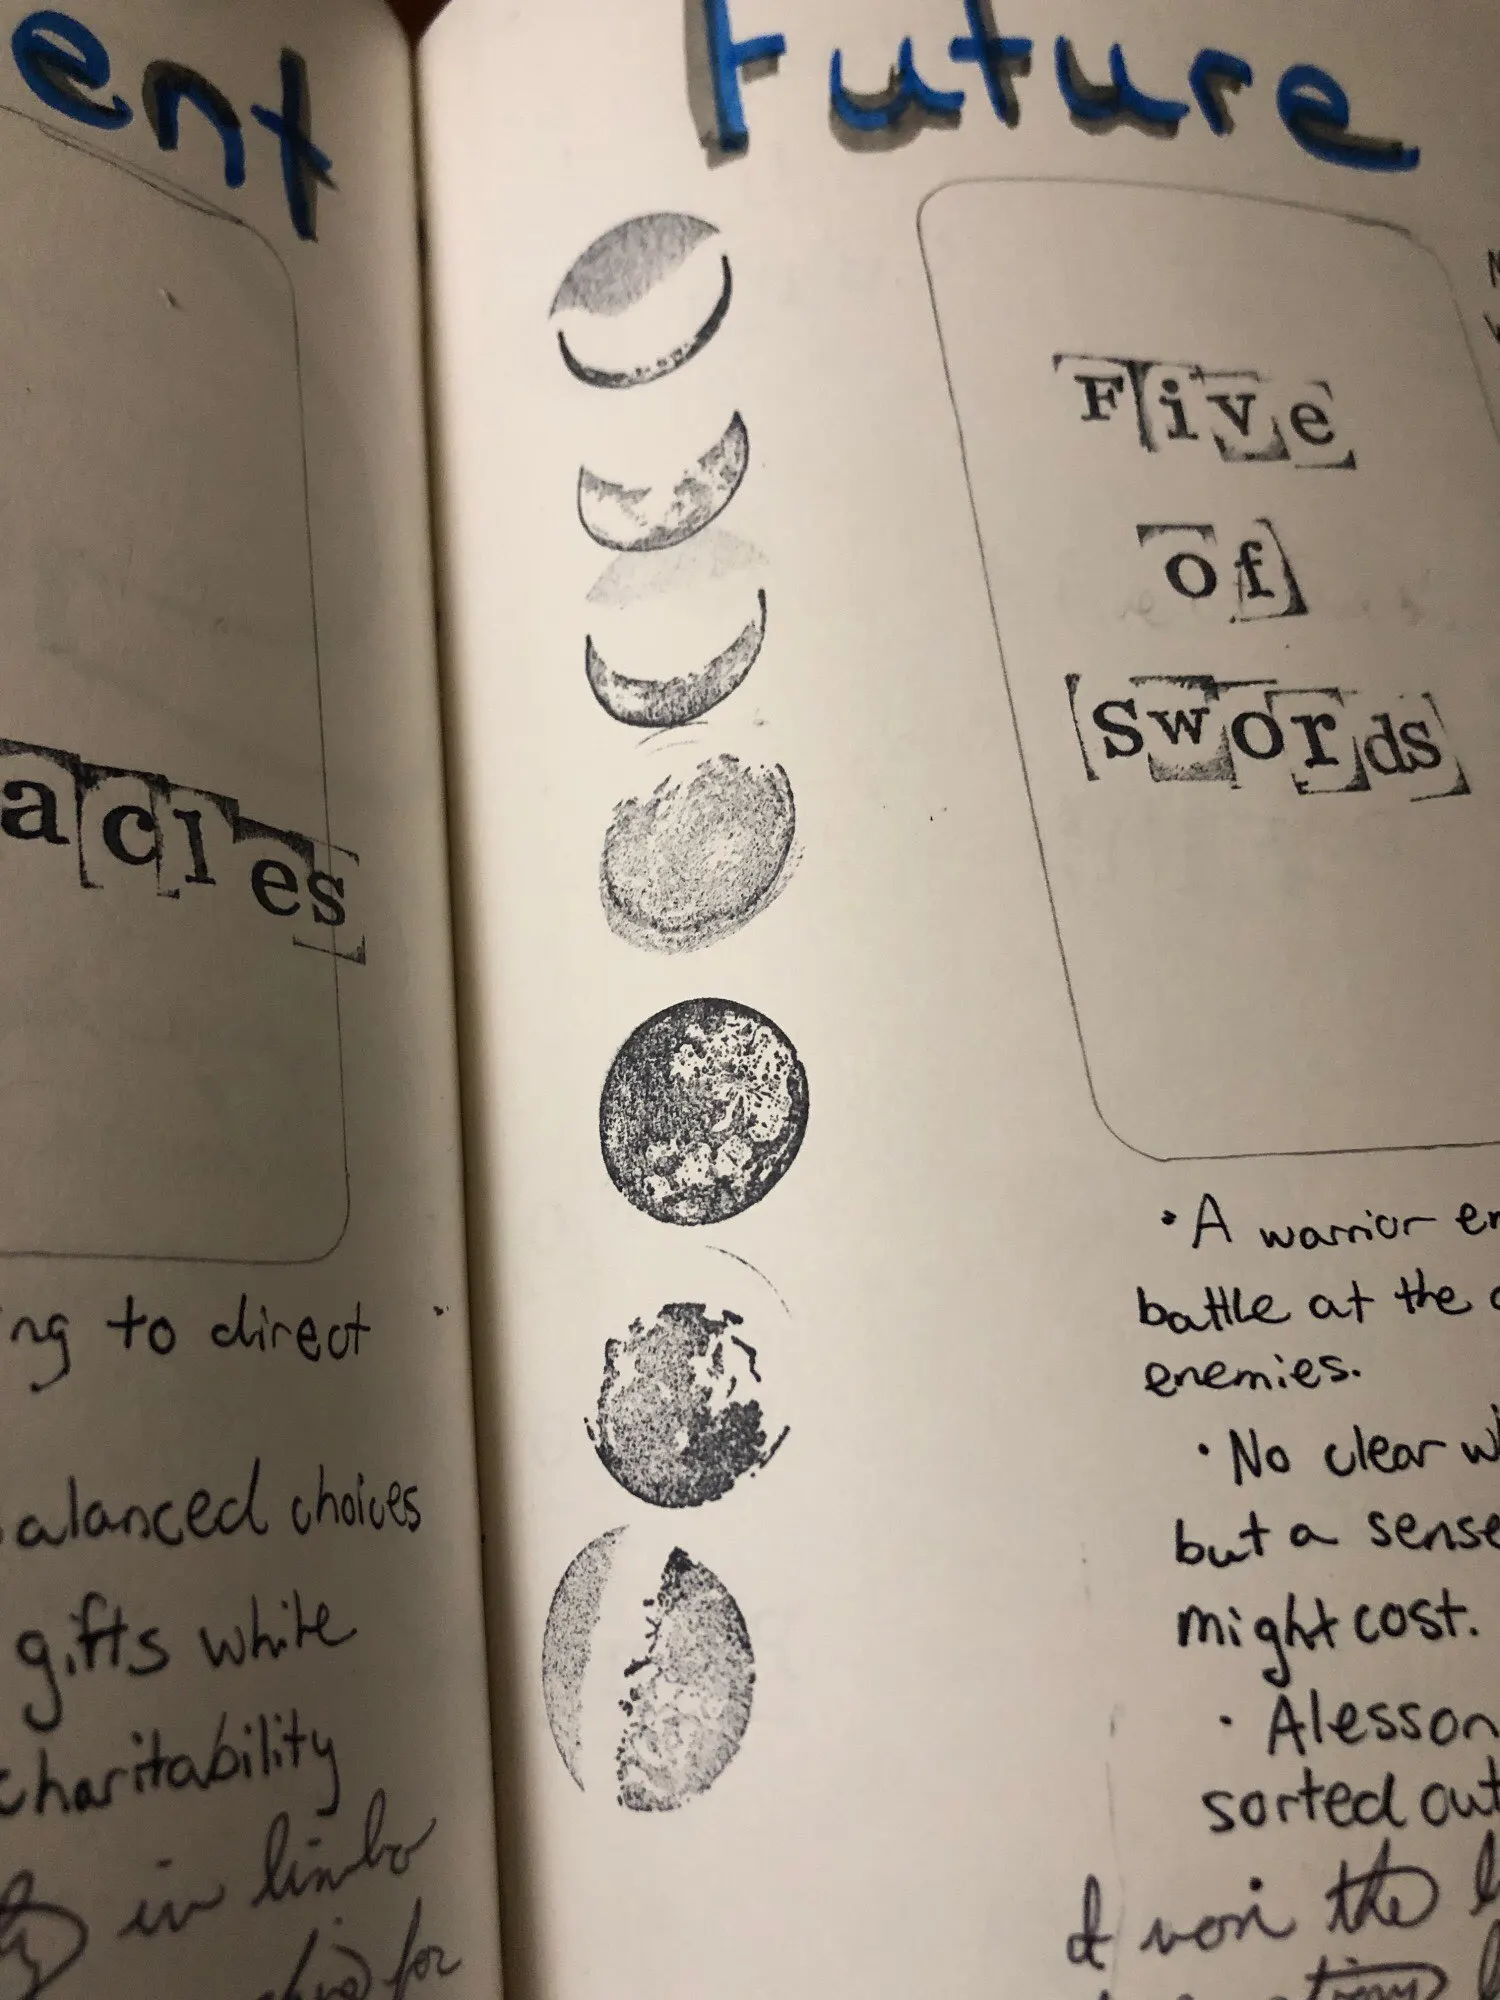 ent
acles
ng to direct
alanced choices
gifts while
charitability
in limbo
for
Future
Five
of
Swords
• A warrior en
battle at the
enemies.
• No clear wi
but a sense
might cost.
• A lesson
sorted out
I won the